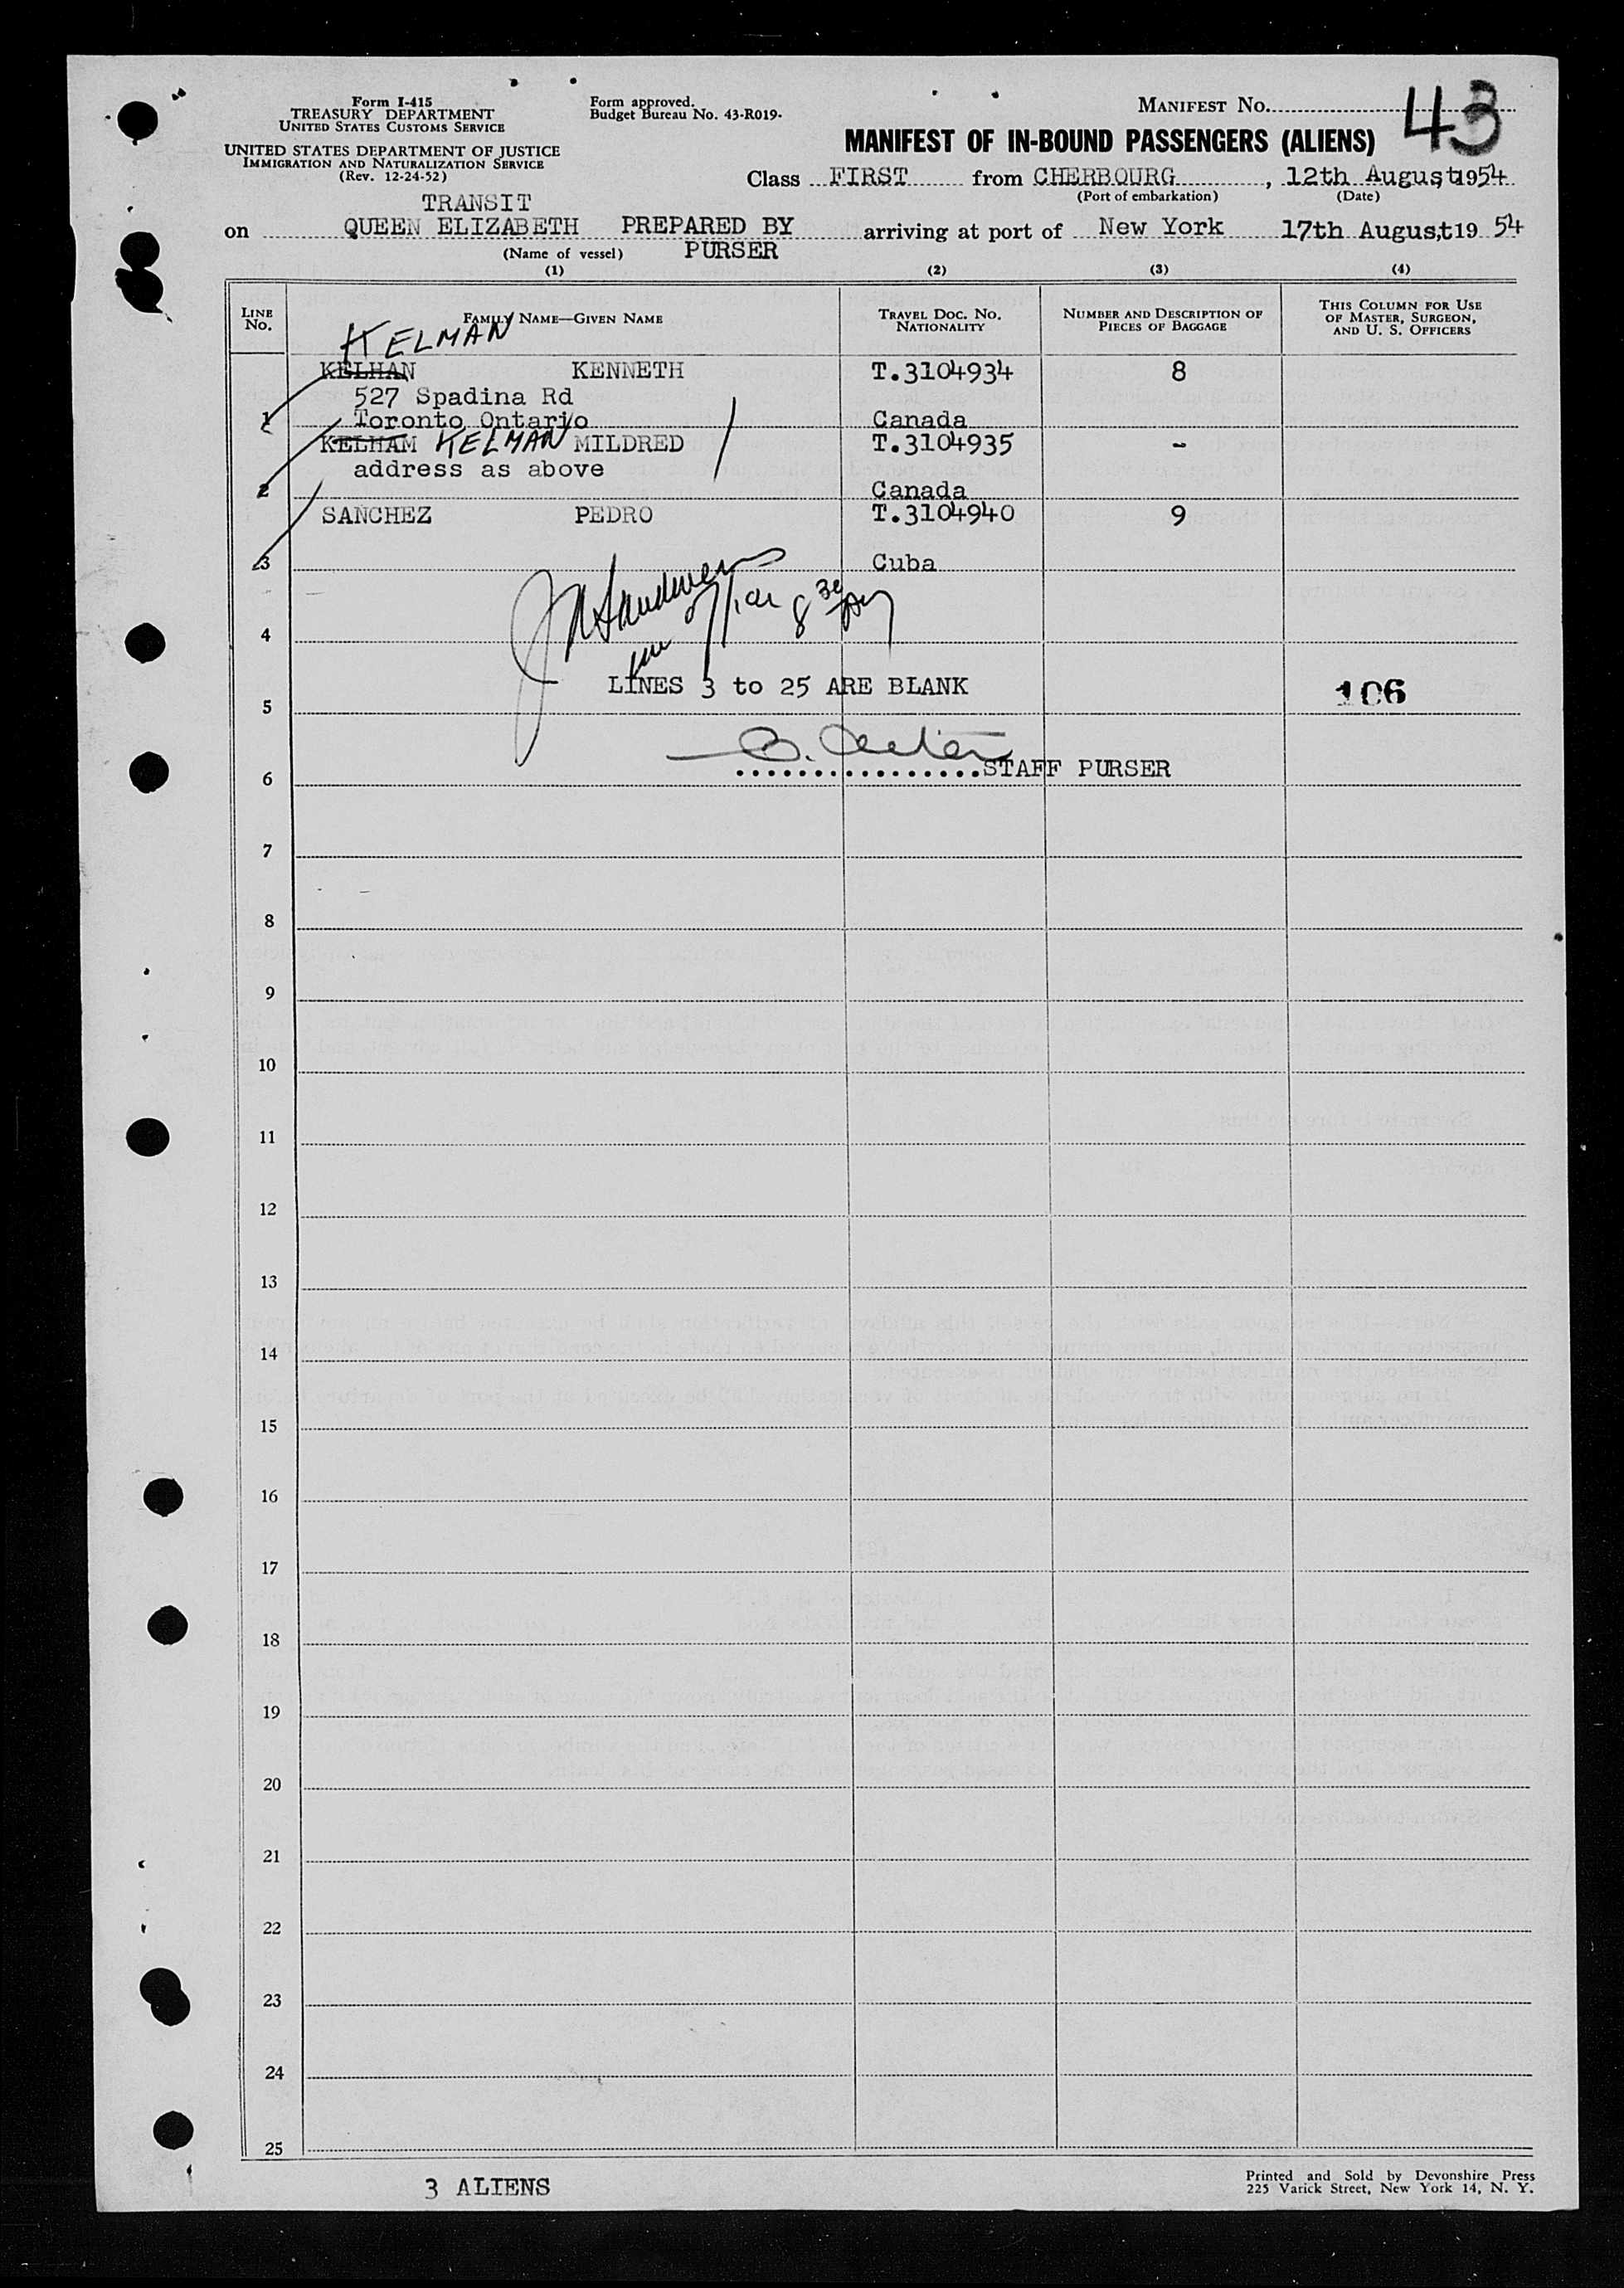 Form I-415
TREASURY DEPARTMENT
UNITED STATES CUSTOMS SERVICE
UNITED STATES DEPARTMENT OF JUSTICE
IMMIGRATION AND NATURALIZATION SERVICE
(Rev. 12-24-52)
Form approved.
Budget Bureau No. 43-R019.
MANIFEST No. 43
MANIFEST OF IN-BOUND PASSENGERS (ALIENS)
Class FIRST from CHERBOURG, 12th August, 1954
(Port of embarkation) (Date)
TRANSIT
on QUEEN ELIZABETH PREPARED BY PURSER arriving at port of New York 17th August, 19 54
(Name of vessel)
(1) (2) (3) (4)
LINE No. FAMILY NAME—GIVEN NAME TRAVEL DOC. No. NATIONALITY NUMBER AND DESCRIPTION OF PIECES OF BAGGAGE THIS COLUMN FOR USE OF MASTER, SURGEON, AND U. S. OFFICERS
KELMAN
KELHAN KENNETH T.3104934 8
527 Spadina Rd
1 Toronto Ontario Canada
KELHAM KELMAN MILDRED T.3104935 -
address as above
2 Canada
SANCHEZ PEDRO T.3104940 9
3 Cuba
4
LINES 3 to 25 ARE BLANK 106
5
STAFF PURSER
6
7
8
9
10
11
12
13
14
15
16
17
18
19
20
21
22
23
24
25
3 ALIENS
Printed and Sold by Devonshire Press
225 Varick Street, New York 14, N. Y.